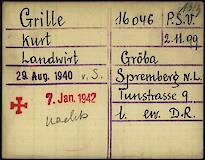 Grille
16046 P.S.V.
Kurt
2.11.99
Landwirt
Gröba
29. Aug. 1940 v. S.
Spremberg N.L.
7. Jan. 1942
Turnstrasse 9
nachts
l. ew. D.R.